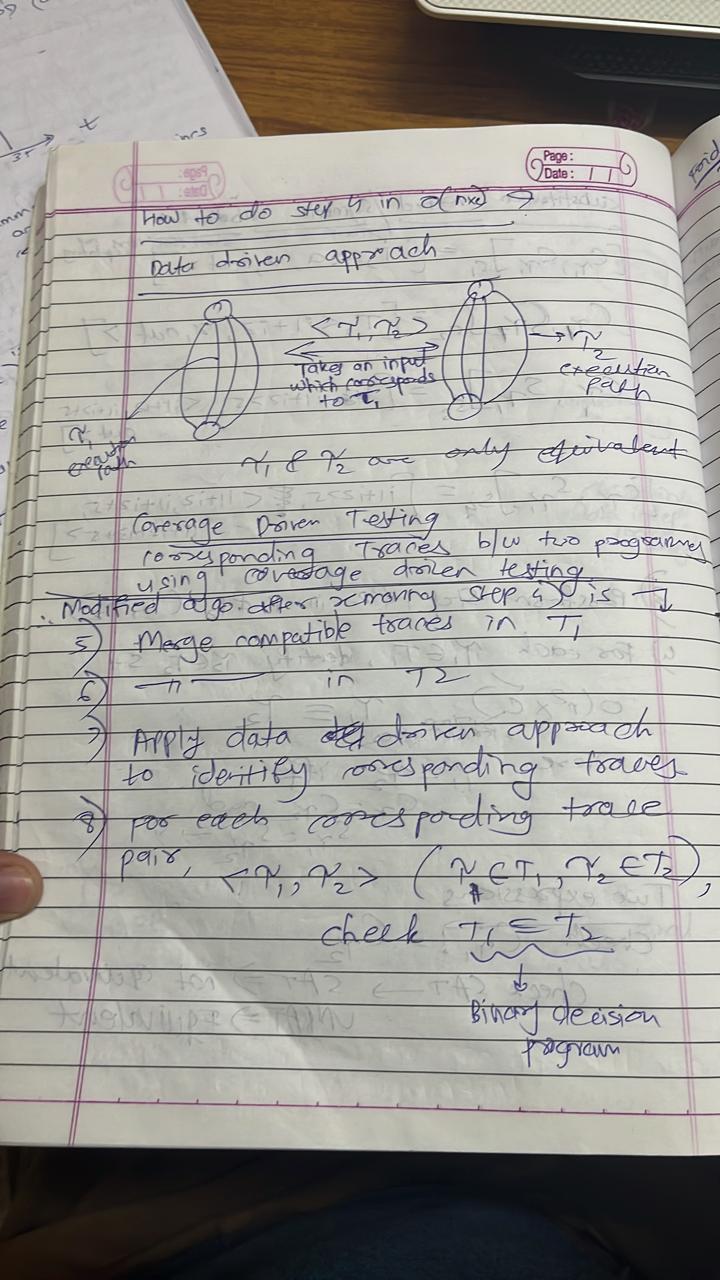 Page:
Date:
How to do step 4 in O(nxc) →
Data driven approach
<τ1, τ2>
Takes an input
which corresponds
to τ1
τ2
execution
path
τ1
execution
path
τ1 & τ2 are only equivalent
Coverage Driven Testing
corresponding Traces b/w two programs
using coverage driven testing
∴ Modified algo. after removing step 4) is ↴
5) Merge compatible traces in T1
6) —"— in T2
7) Apply data driven approach
to identify corresponding traces
8) For each corresponding trace
pair, <τ1, τ2> (τ1 ∈ T1, τ2 ∈ T2),
check T1 ≡ T2
↓
Binary decision
program